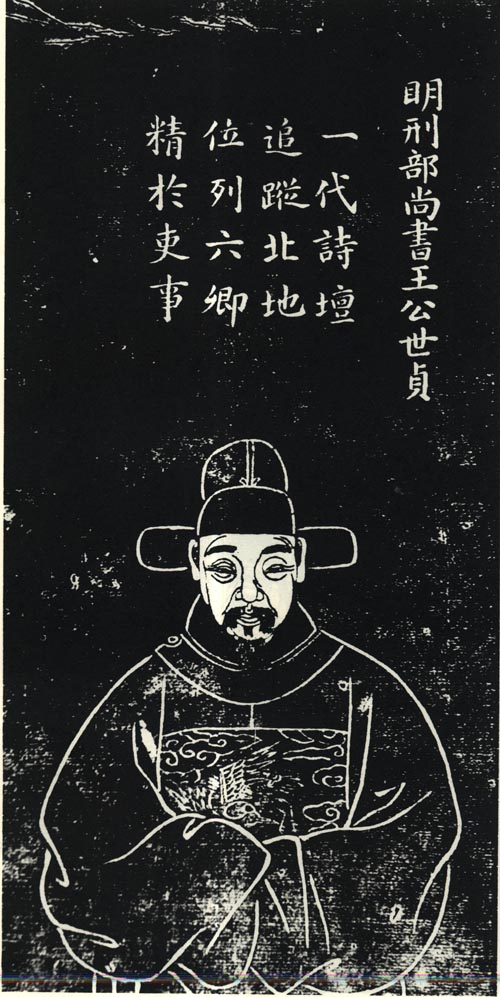 明刑部尚書王公世貞
一代詩壇
追蹤北地
位列六卿
精於吏事